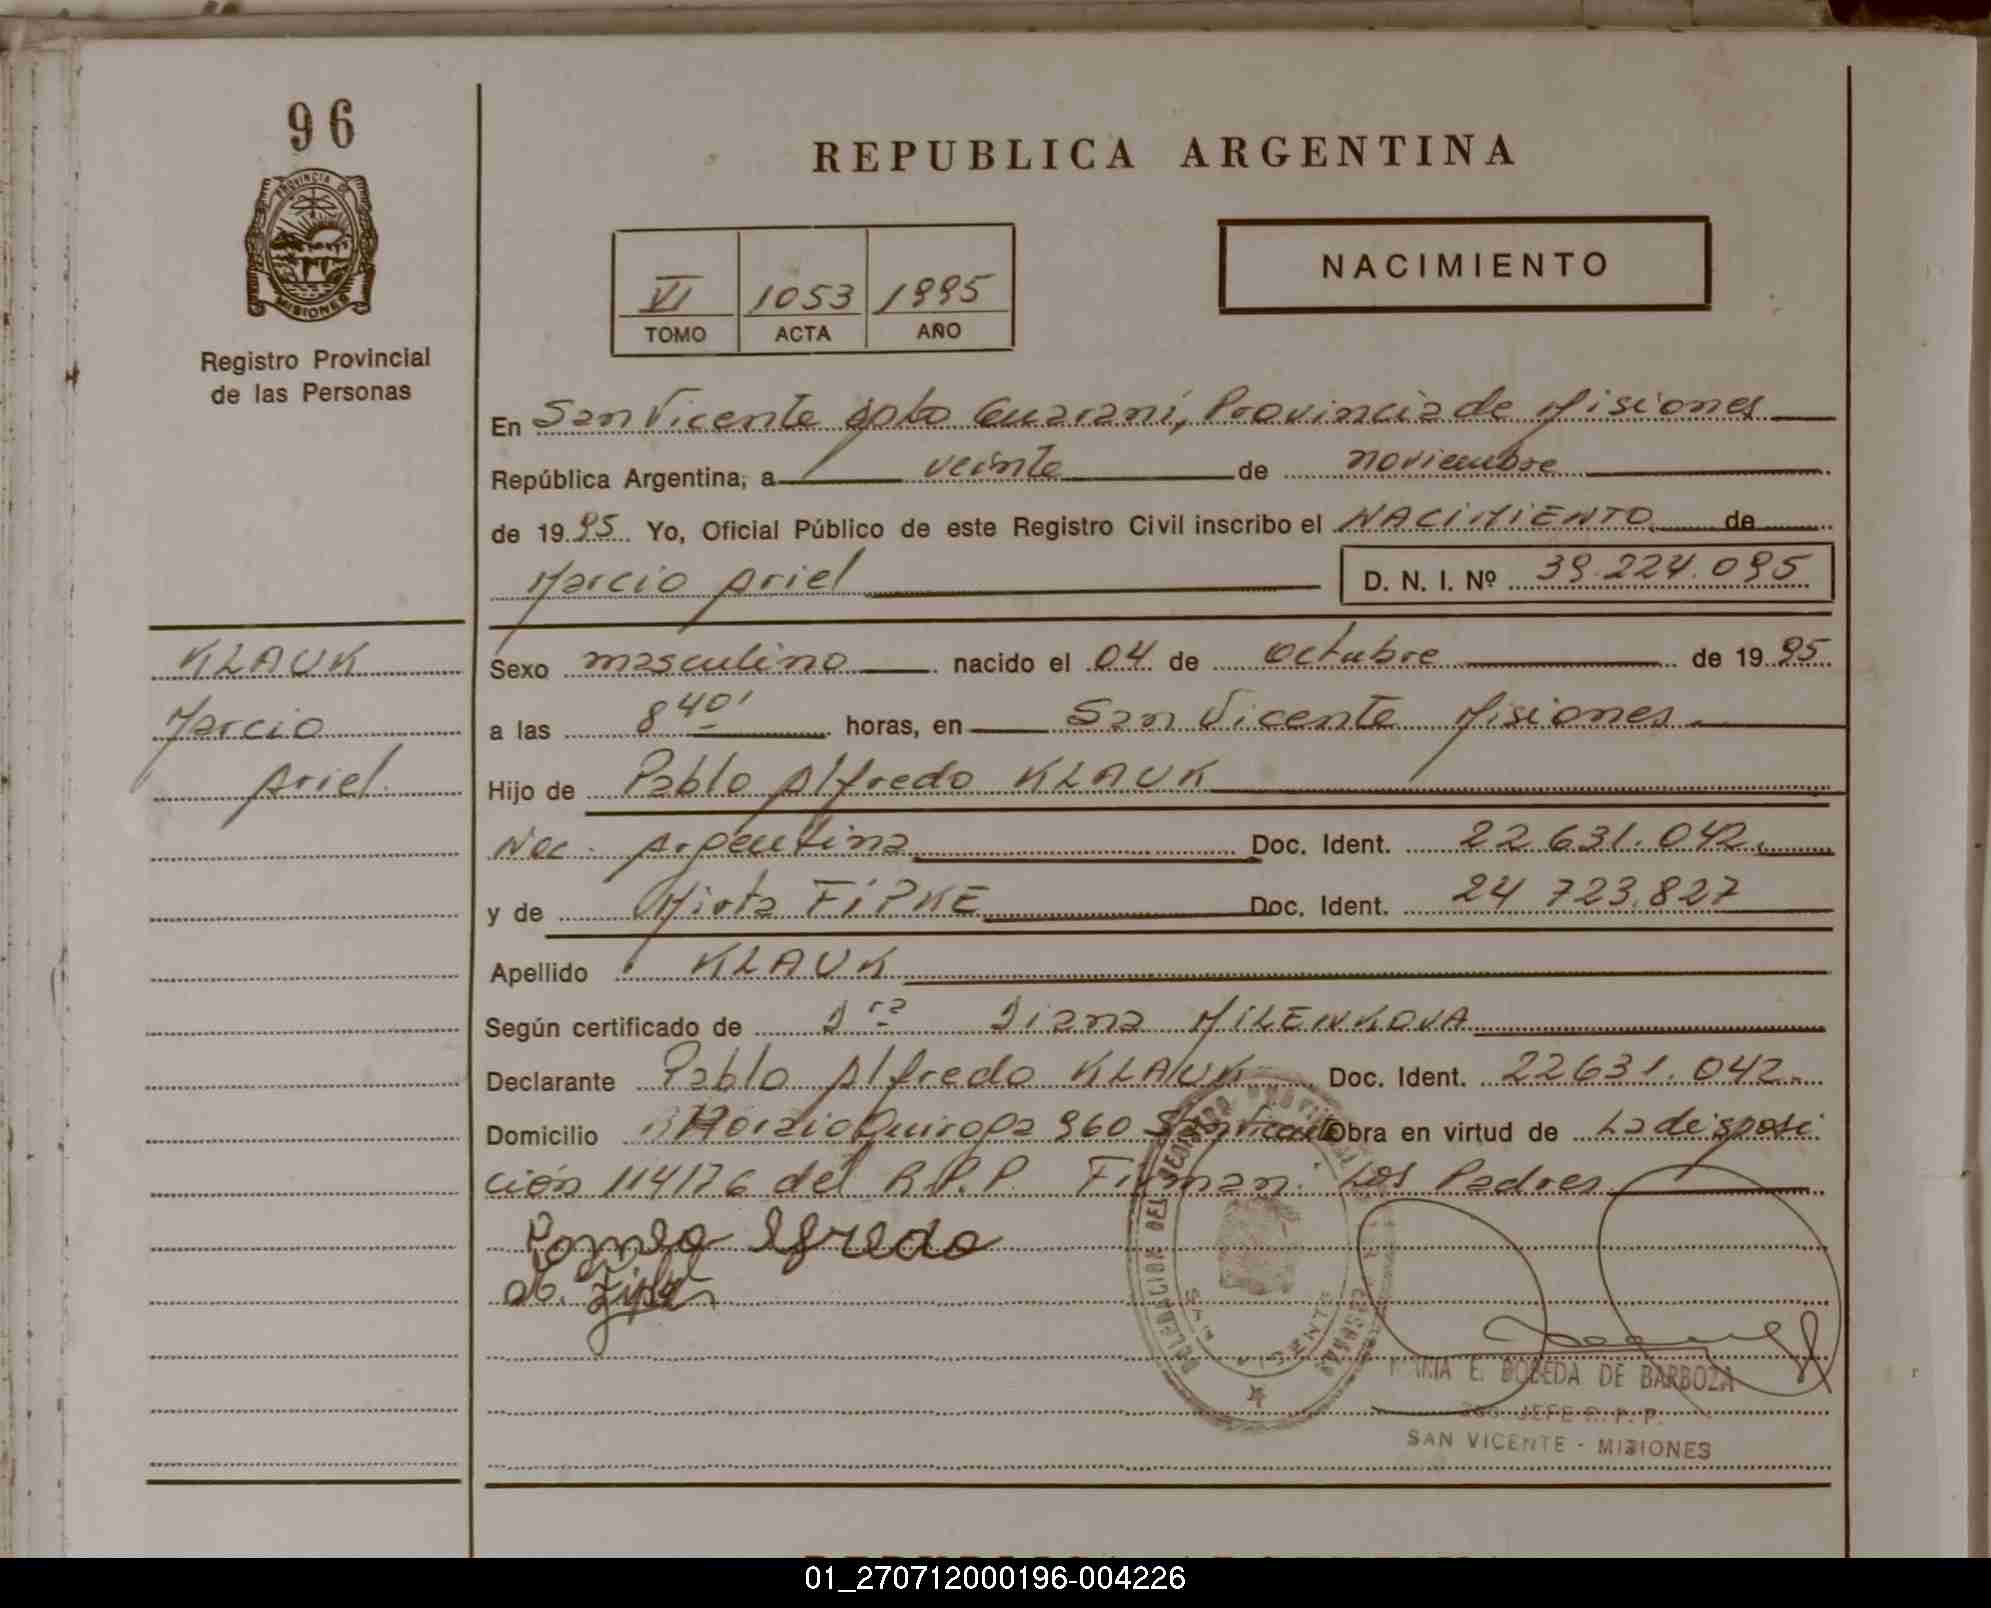 96
PROVINCIA DE
MISIONES
Registro Provincial
de las Personas
REPUBLICA ARGENTINA
VI 1053 1995
TOMO ACTA AÑO
NACIMIENTO
En San Vicente Dpto Guaraní, Provincia de Misiones
República Argentina, a veinte de noviembre
de 1995 Yo, Oficial Público de este Registro Civil inscribo el NACIMIENTO de
Marcio Ariel D. N. I. Nº 39.224.095
KLAUK
Marcio
Ariel.
Sexo masculino nacido el 04 de octubre de 1995
a las 8 40' horas, en San Vicente Misiones
Hijo de Pablo Alfredo KLAUK
Nac. Argentina Doc. Ident. 22 631.042.
y de Mirta FIPKE Doc. Ident. 24 723.827
Apellido KLAUK
Según certificado de Dra Diana MILENKOVA
Declarante Pablo Alfredo KLAUK Doc. Ident. 22631.042.
Domicilio Horazio Quiroga 960 San Vicente Obra en virtud de La disposi
ción 114176 del R.P.P. Firman: Los Padres
Alfredo
DELEGACION DEL
SAN VICENTE
E. BOBEDA DE BARBOZA
JEFE R. P. P.
SAN VICENTE - MISIONES
01_270712000196-004226